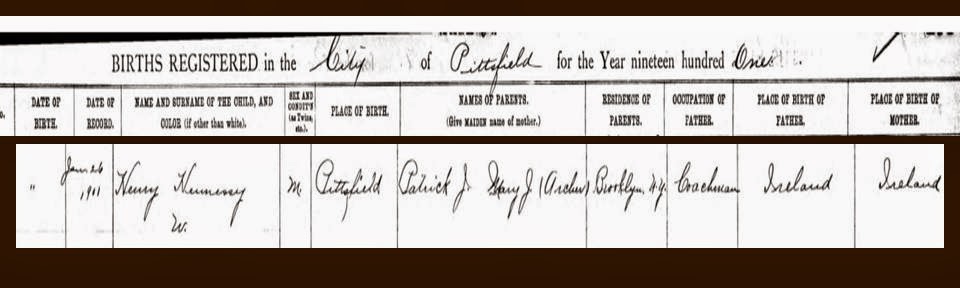 BIRTHS REGISTERED in the City of Pittsfield for the Year nineteen hundred One
DATE OF BIRTH.
DATE OF RECORD.
NAME AND SURNAME OF THE CHILD, AND COLOR (if other than white).
SEX AND CONDIT'N (as Twins, etc.).
PLACE OF BIRTH.
NAMES OF PARENTS.
(Give MAIDEN name of mother.)
RESIDENCE OF PARENTS.
OCCUPATION OF FATHER.
PLACE OF BIRTH OF FATHER.
PLACE OF BIRTH OF MOTHER.
" Jan 26 Henry Hennessy M. Pittsfield Patrick J. Mary J. (Archer) Brooklyn, N.Y. Coachman Ireland Ireland
W.